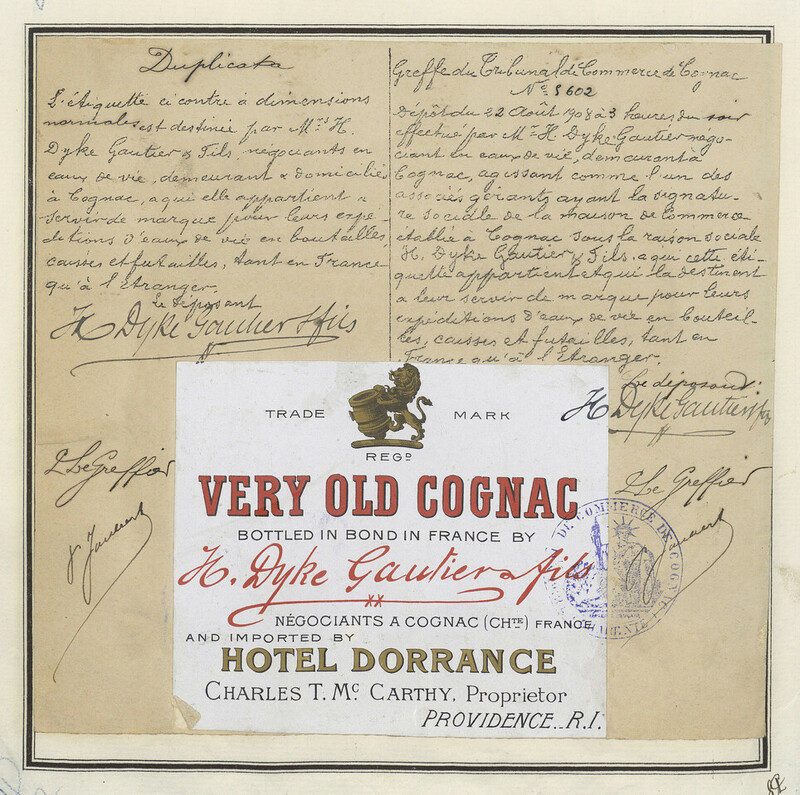 Duplicata
L'étiquette ci contre à dimensions
normales est destinée par Mrs H.
Dyke Gautier & Fils, négociants en
eaux de vie, demeurant & domiciliés
à Cognac, a qui elle appartient a
servir de marque pour leurs expé-
ditions d'eaux de vie en bouteilles,
caisses et futailles, tant en France
qu'à l'Etranger.
Le déposant
H Dyke Gautier & fils
Le Greffier
Greffe du Tribunal de Commerce de Cognac
No 5602
Dépôt du 22 Août 1908 à 3 heures du soir
effectué par Mr H. Dyke Gautier négo-
ciant en eaux de vie, demeurant à
Cognac, agissant comme l'un des
associés gérants ayant la signatu-
re sociale de la maison de Commerce
établie à Cognac sous la raison sociale
H. Dyke Gautier & Fils, a qui cette éti-
quette appartient et qui la destinent
a leur servir de marque pour leurs
expéditions d'eaux de vie en bouteil-
les, caisses et futailles, tant en
France qu'à l'Etranger.
Le déposant:
H Dyke Gautier & fils
Le Greffier
TRADE MARK
REGD
VERY OLD COGNAC
BOTTLED IN BOND IN FRANCE BY
H. Dyke Gautier & fils
XX
NÉGOCIANTS A COGNAC (CHTE) FRANCE
AND IMPORTED BY
HOTEL DORRANCE
CHARLES T. Mc CARTHY, Proprietor
PROVIDENCE. R.I.
DE COMMERCE DE COGNAC